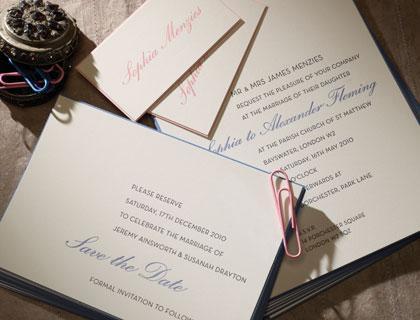 Sophia Menzies
Sophia
MR & MRS JAMES MENZIES
REQUEST THE PLEASURE OF YOUR COMPANY
AT THE MARRIAGE OF THEIR DAUGHTER
Sophia to Alexander Fleming
AT THE PARISH CHURCH OF ST MATTHEW
BAYSWATER, LONDON W2
SATURDAY, 16TH MAY 2010
O'CLOCK
AFTERWARDS AT
DORCHESTER, PARK LANE.
R.S.V.P.
PORCHESTER SQUARE
LONDON W2
PLEASE RESERVE
SATURDAY, 17TH DECEMBER 2010
TO CELEBRATE THE MARRIAGE OF
JEREMY AINSWORTH & SUSANAH DRAYTON
Save the Date
FORMAL INVITATION TO FOLLOW